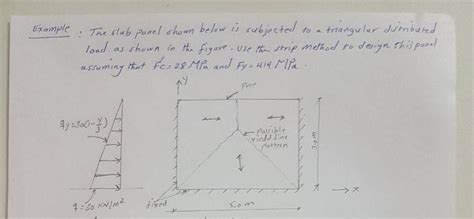 Example : The slab panel shown below is subjected to a triangular distributed
load as shown in the figure. Use the strip method to design this panel
assuming that F'c = 28 MPa and Fy = 414 MPa.
y
Free
qy=30(1-y/3)
Possible
yield line
pattern
3.0 m
q=30 KN/m²
fixed
5.0 m
x